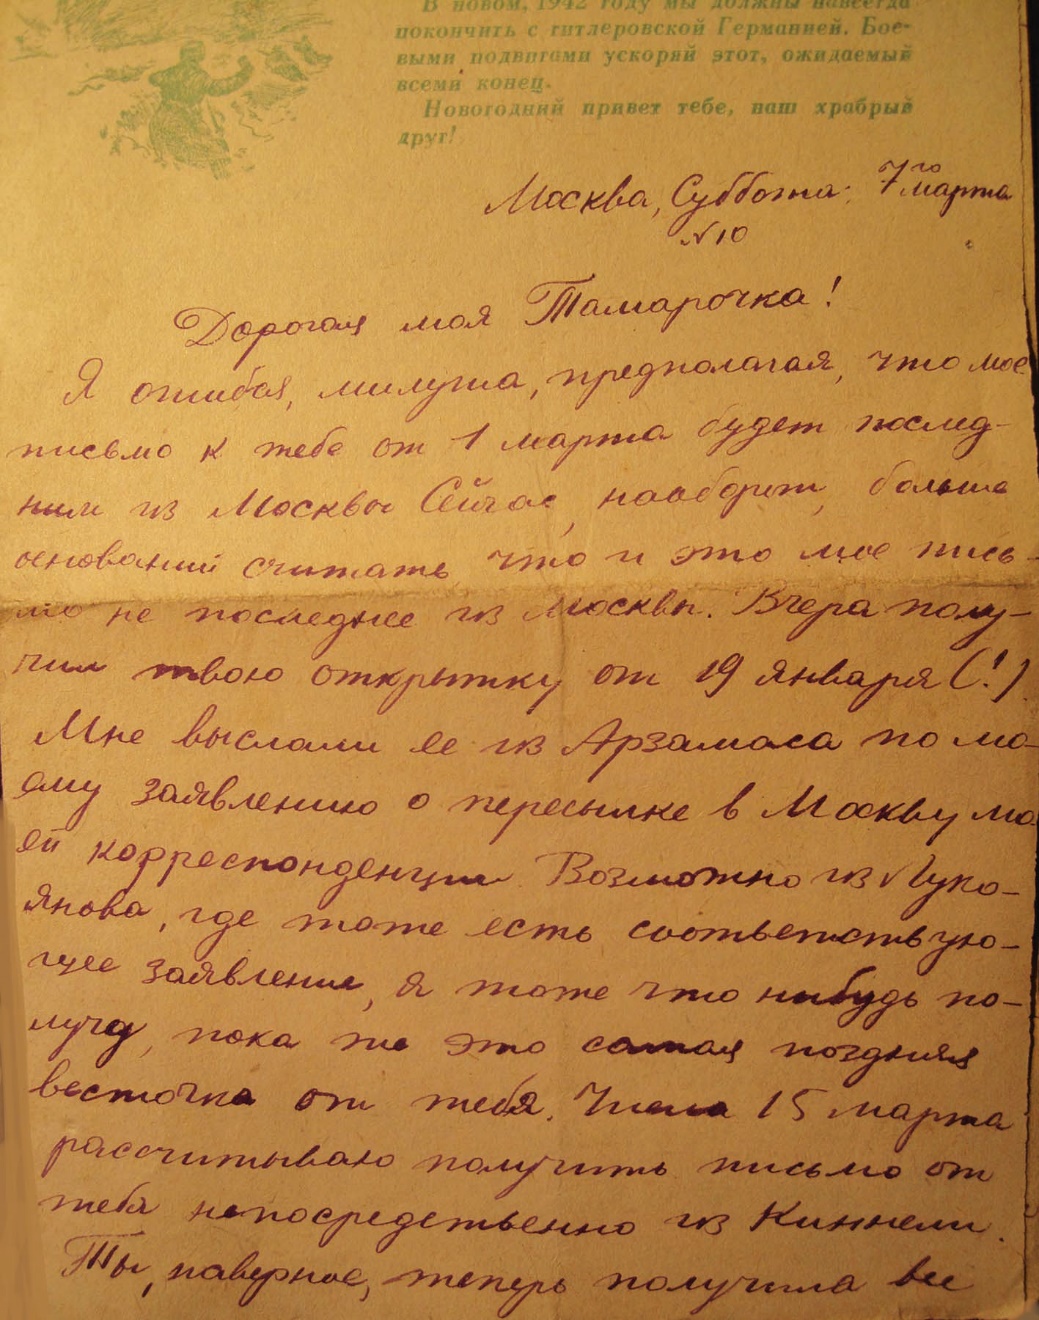 В новом, 1942 году мы должны навсегда
покончить с гитлеровской Германией. Бое-
выми подвигами ускоряй этот, ожидаемый
всеми конец.
Новогодний привет тебе, наш храбрый
друг!
Москва, Суббота. 7го марта
№ 10
Дорогая моя Тамарочка!
Я ошибся, милуша, предполагая, что мое
письмо к тебе от 1 марта будет послед-
ним из Москвы Сейчас, наоборот, больше
оснований считать, что и это мое пись-
мо не последнее из Москвы. Вчера полу-
чил твою открытку от 19 января (!)
Мне выслали ее из Арзамаса по мо-
ему заявлению о пересылке в Москву мо-
ей корреспонденции. Возможно из Луко-
янова, где тоже есть соответствую-
щее заявление, я тоже что нибудь по-
лучу, пока же это самая поздняя
весточка от тебя. Числа 15 марта
рассчитываю получить письмо от
тебя непосредственно из Кинели.
Ты, наверное, теперь получила все